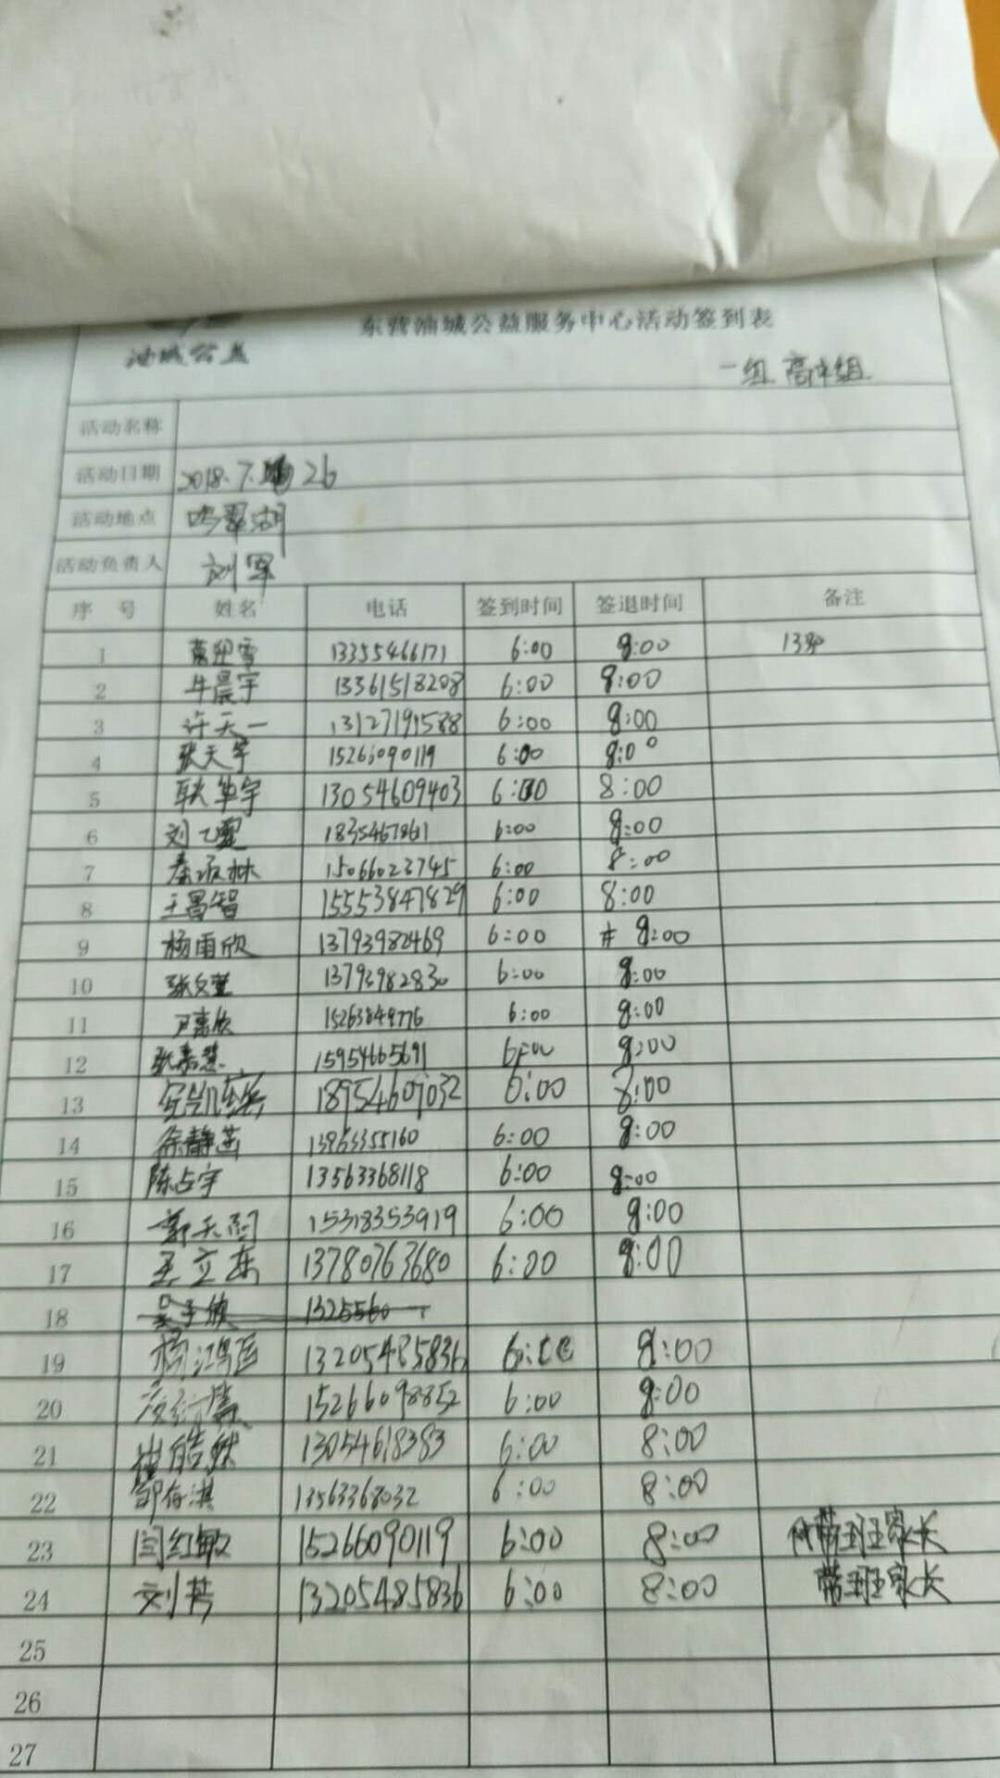 东营油城公益服务中心活动签到表
油城公益
一组 高中组
活动名称
活动日期 2018.7. 26
活动地点 鸣翠湖
活动负责人 刘军
序 号 姓名 电话 签到时间 签退时间 备注
1 13355466171 6:00 8:00
2 牛晨宇 13361518208 6:00 8:00
3 许天一 13127191588 6:00 8:00
4 张天宇 15266090119 6:00 8:00
5 耿华宇 13054609403 6:00 8:00
6 刘乙霏 6:00 8:00
7 秦承林 15066023745 6:00 8:00
8 王昌智 15553847829 6:00 8:00
9 杨雨欣 13793982469 6:00 8:00
10 张文萱 13793982830 6:00 8:00
11 尹嘉欣 15263849776 6:00 8:00
12 张嘉慧 15954665691 6:00 8:00
13 18954609032 6:00 8:00
14 徐静茹 13963355160 6:00 8:00
15 陈占宇 13563368118 6:00 8:00
16 郭天润 15318353919 6:00 8:00
17 王立东 13780763680 6:00 8:00
18 吴子欣 1325560
19 杨鸿臣 13205485836 6:00 8:00
20 15266098852 6:00 8:00
21 崔皓然 13054618383 6:00 8:00
22 邹存淇 13563368032 6:00 8:00
23 闫红敏 15266090119 6:00 8:00 带班家长
24 刘芳 13205485836 6:00 8:00 带班家长
25
26
27